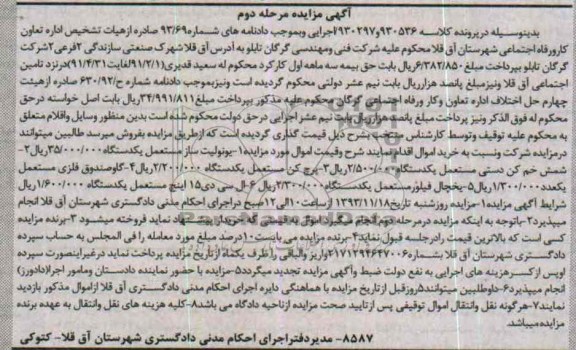 آگهی مزایده مرحله دوم
بدینوسیله درپرونده کلاسه ۹۳۰۵۳۶و۹۳۰۲۹۷اجرایی وبموجب دادنامه های شماره۹۳/۶۹ صادره ازهیات تشخیص اداره تعاون
کارورفاه اجتماعی شهرستان آق قلامحکوم علیه شرکت فنی ومهندسی گرگان تابلو به آدرس آق قلاشهرک صنعتی سازندگی ۲فرعی۲شرکت
گرگان تابلو بپرداخت مبلغ۶/۳۸۲/۸۵۰ریال بابت حق بیمه سه ماهه اول کارکرد محکوم له سعید قدیری(۹۱/۲/۱لغایت۹۱/۴/۳۱)درنزد تامین
اجتماعی آق قلا ونیزمبلغ پانصد هزارریال بابت نیم عشر دولتی محکوم گردیده است ونیزبموجب دادنامه شماره ح/۹۲-۶۳۰ صادره ازهیئت
چهارم حل اختلاف اداره تعاون وکار ورفاه اجتماعی گرگان محکوم علیه مذکور بپرداخت مبلغ۳۴/۹۹۱/۸۱۱ریال بابت اصل خواسته درحق
محکوم له فوق الذکر ونیز پرداخت مبلغ پانصد هزارریال بابت نیم عشر اجرایی درحق دولت محکوم شده است بدین منظور وسایل واقلام متعلق
به محکوم علیه توقیف وتوسط کارشناس منتخب بشرح ذیل قیمت گذاری گردیده است که ازطریق مزایده بفروش میرسد طالبین میتوانند
درمزایده شرکت ونسبت به خرید اموال اقدام نمایند شرح وقیمت اموال مورد مزایده۱-یونولیت ساز مستعمل یکدستگاه۳۵/۰۰۰/۰۰۰ریال۲-
شمش خم کن دستی مستعمل یکدستگاه۲/۵۰۰/۰۰۰ریال۳-پرچ کن مستعمل یکدستگاه ۲/۲۰۰/۰۰۰ریال۴-گاوصندوق فلزی مستعمل
یکعدد۱/۳۰۰/۰۰۰ریال۵-یخچال فیلورمستعمل یکدستگاه۲/۳۰۰/۰۰۰ریال ۶-ال سی دی۱۵ اینچ مستعمل یکدستگاه ۱/۶۰۰/۰۰۰ریال
شرایط آگهی مزایده۱-مزایده روزشنبه تاریخ۱۳۹۳/۱۱/۱۸ ازساعت۱۰الی۱۲صبح دراجرای احکام مدنی دادگستری شهرستان آق قلا انجام
میپذیرد۲-باتوجه به اینکه مزایده درمرحله دوم انجام میگیرد اموال به قیمتی که خریدار پیشنهاد نماید فروخته میشود ۳-برنده مزایده
کسی است که بالاترین قیمت رادرجلسه قبول نماید۴-برنده مزایده می بایست۱۰درصد مبلغ مورد معامله را فی المجلس به حساب سپرده
دادگستری شهرستان آق قلا بشماره۲۱۷۱۲۹۴۶۴۷۰۰۶واریز والباقی راظرف یکماه ازتاریخ مزایده پرداخت نماید درغیراینصورت سپرده
اوپس ازکسرهزینه های اجرایی به نفع دولت ضبط وآگهی مزایده تجدید میگردد۵-مزایده با حضور نماینده دادستان ومامور اجرا(دادورز)
انجام میپذیرد۶-داوطلبین میتوانند۵روزقبل ازتاریخ مزایده با هماهنگی دایره اجرای احکام مدنی دادگستری آق قلا ازاموال مذکور بازدید
نمایند۷-هرگونه نقل وانتقال اموال توقیفی پس ازتایید صحت مزایده ازناحیه دادگاه می باشد۸-کلیه هزینه های نقل وانتقال به عهده برنده
مزایده میباشد.
۸۵۸۷- مدیردفتراجرای احکام مدنی دادگستری شهرستان آق قلا- کتوکی